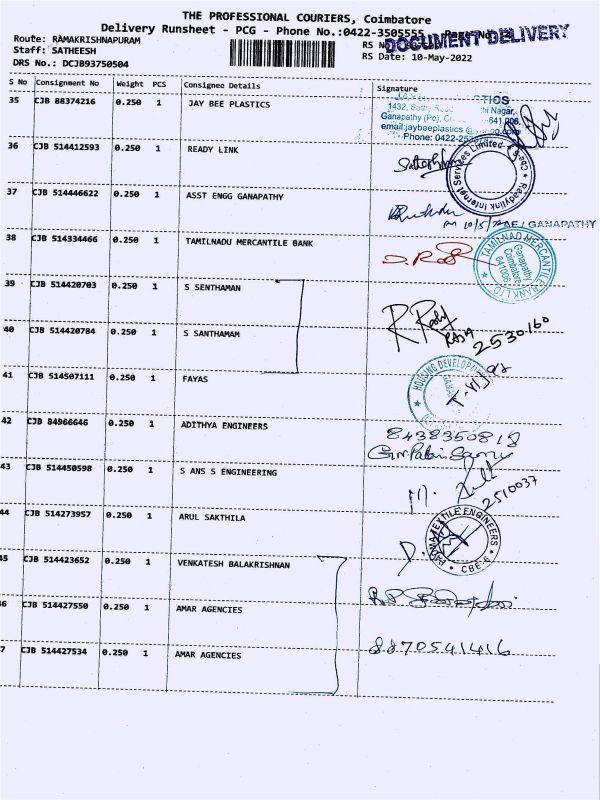 THE PROFESSIONAL COURIERS, Coimbatore
Delivery Runsheet - PCG - Phone No.:0422-3505555
DOCUMENT DELIVERY
Route: RAMAKRISHNAPURAM
Staff: SATHEESH
RS Date: 10-May-2022
DRS No.: DCJB93750504
S No Consignment No Weight PCS Consignee Details Signature
35 CJB 88374216 0.250 1 JAY BEE PLASTICS
1432, Nagar,
Ganapathy (Po), 641 006.
email:jaybeeplastics
Phone: 0422
36 CJB 514412593 0.250 1 READY LINK
Readylink Internet Services Limited
37 CJB 514446622 0.250 1 ASST ENGG GANAPATHY
10/5/22 AE / GANAPATHY
38 CJB 514334466 0.250 1 TAMILNADU MERCANTILE BANK
TAMILNAD MERCANTILE BANK LTD
Ganapathy
Coimbatore
641006
39 CJB 514420703 0.250 1 S SENTHAMAN
40 CJB 514420784 0.250 1 S SANTHAMAM
RAJA
2530160
41 CJB 514507111 0.250 1 FAYAS
HOUSING DEVELOPMENT
42 CJB 84966646 0.250 1 ADITHYA ENGINEERS
8438350818
43 CJB 514450598 0.250 1 S ANS S ENGINEERING
2510037
44 CJB 514273957 0.250 1 ARUL SAKTHILA
TEXTILE ENGINEERS
CBE-6
45 CJB 514423652 0.250 1 VENKATESH BALAKRISHNAN
6 CJB 514427550 0.250 1 AMAR AGENCIES
7 CJB 514427534 0.250 1 AMAR AGENCIES
8870541416